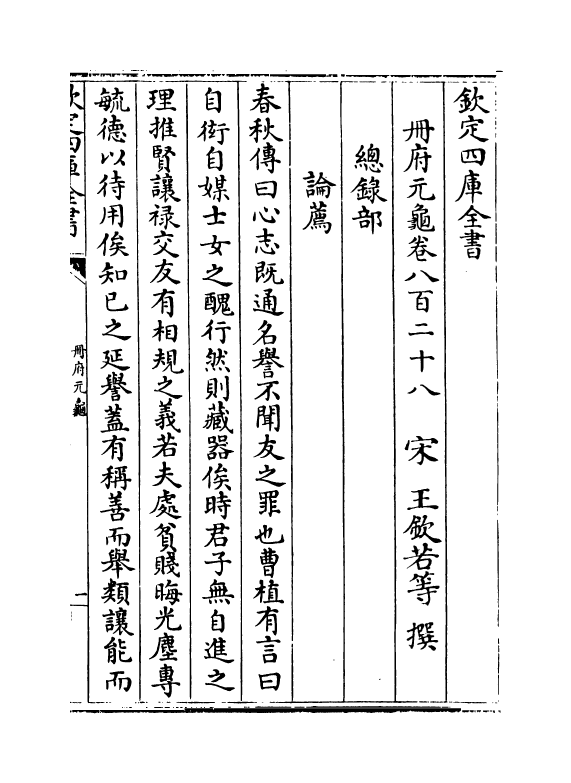 欽定四庫全書
冊府元龜卷八百二十八　宋　王欽若等　撰
總錄部
論薦
春秋傳曰心志既通名譽不聞友之罪也曹植有言曰
自衒自媒士女之醜行然則藏器俟時君子無自進之
理推賢讓禄交友有相規之義若夫處貧賤晦光塵專
毓德以待用俟知已之延譽蓋有稱善而舉類讓能而
欽定四庫全書
冊府元龜